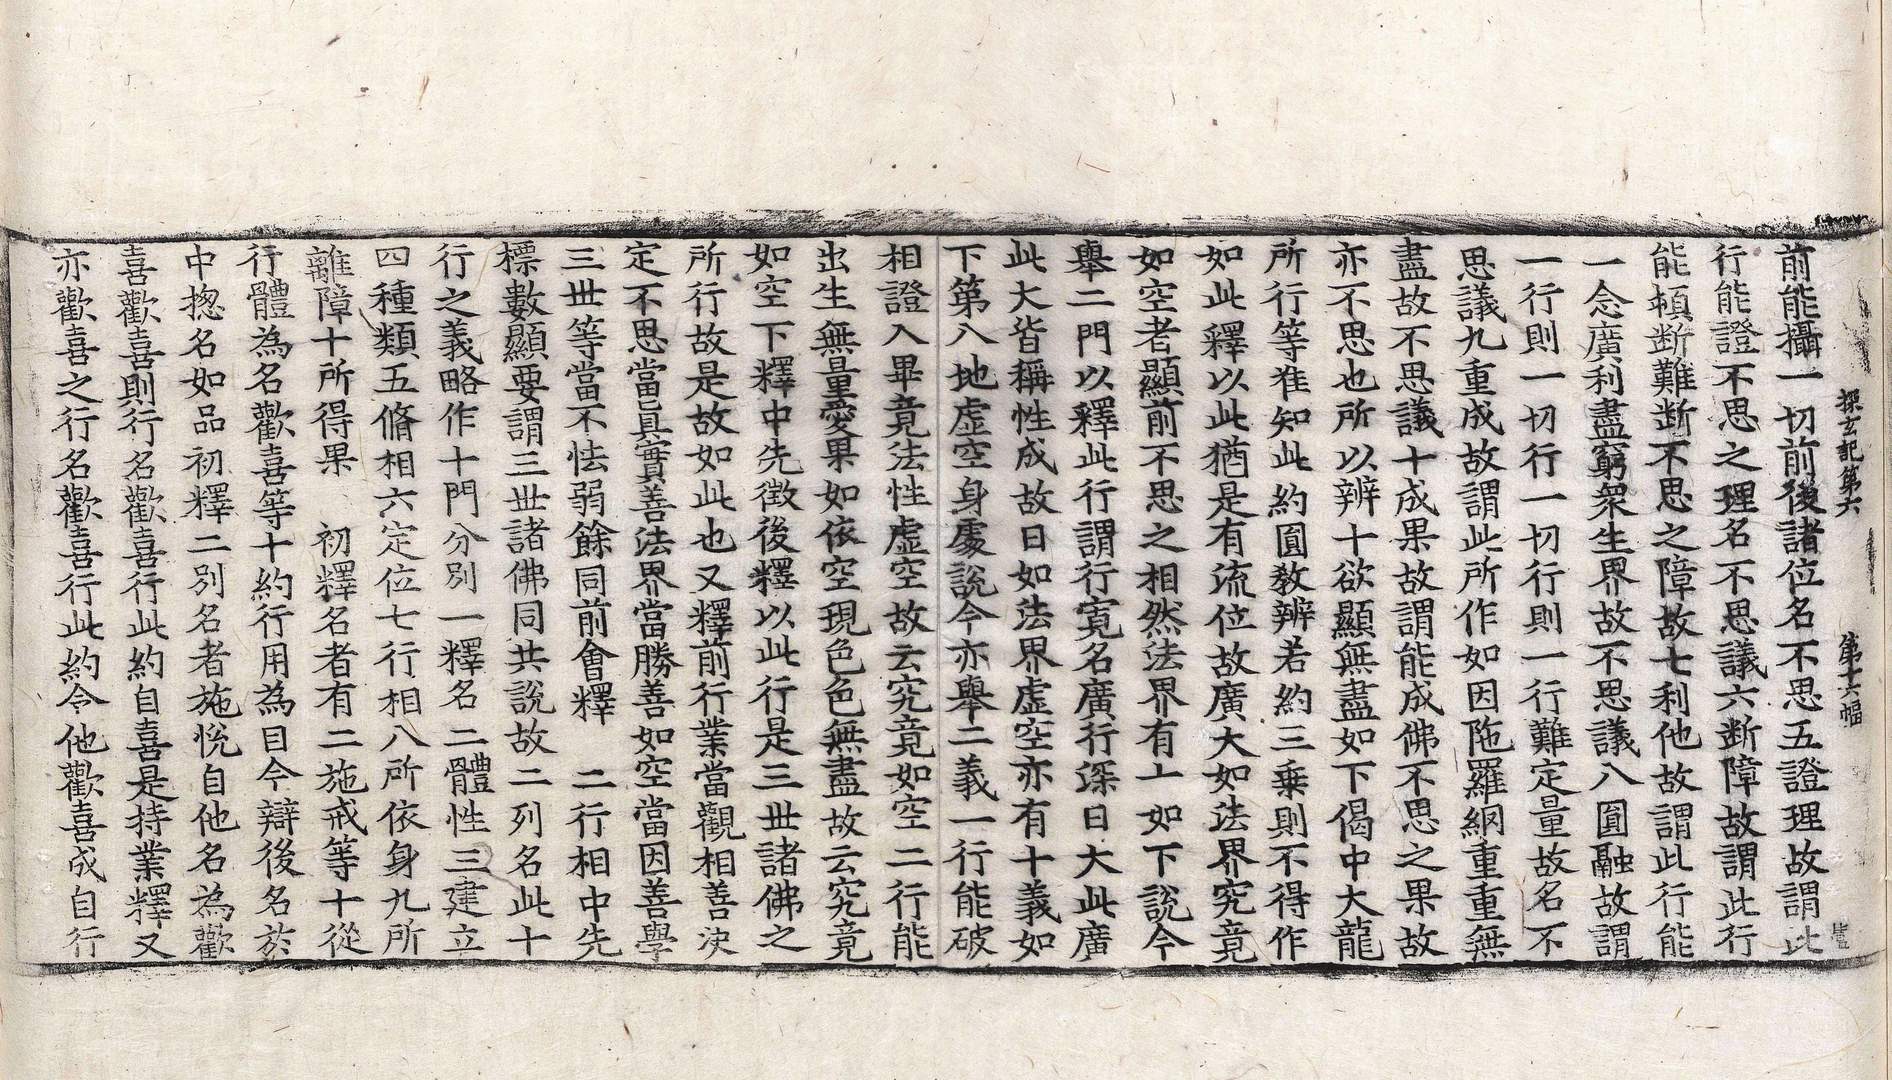 探玄記第六　第十六幅
前能攝一切前後諸位名不思五證理故謂此
行能證不思之理名不思議六断障故謂此行
能頓断難断不思之障故七利他故謂此行能
一念廣利盡窮衆生界故不思議八圓融故謂
一行則一切行一切行則一行難定量故名不
思議九重成故謂此所作如因陁羅網重重無
盡故不思議十成果故謂能成佛不思之果故
亦不思也所以辨十欲顯無盡如下偈中大龍
所行等准知此約圓敎辨若約三乗則不得作
如此釋以此猶是有流位故廣大如法界究竟
如空者顯前不思之相然法界有丄如下說今
舉二門以釋此行謂行寛名廣行深曰大此廣
此大皆稱性成故曰如法界虚空亦有十義如
下第八地虚空身處說今亦舉二義一行能破
相證入畢竟法性虚空故云究竟如空二行能
出生無量愛果如依空現色色無盡故云究竟
如空下釋中先徵後釋以此行是三世諸佛之
所行故是故如此也又釋前行業當觀相善決
定不思當真實善法界當勝善如空當因善學
三世等當不怯弱餘同前會釋　二行相中先
標數顯要謂三世諸佛同共說故二列名此十
行之義略作十門分別一釋名二體性三建立
四種類五脩相六定位七行相八所依身九所
離障十所得果　初釋名者有二施戒等十從
行體為名歡喜等十約行用為目今辯後名於
中揔名如品初釋二別名者施恱自他名為歡
喜歡喜則行名歡喜行此約自喜是持業釋又
亦歡喜之行名歡喜行此約令他歡喜成自行